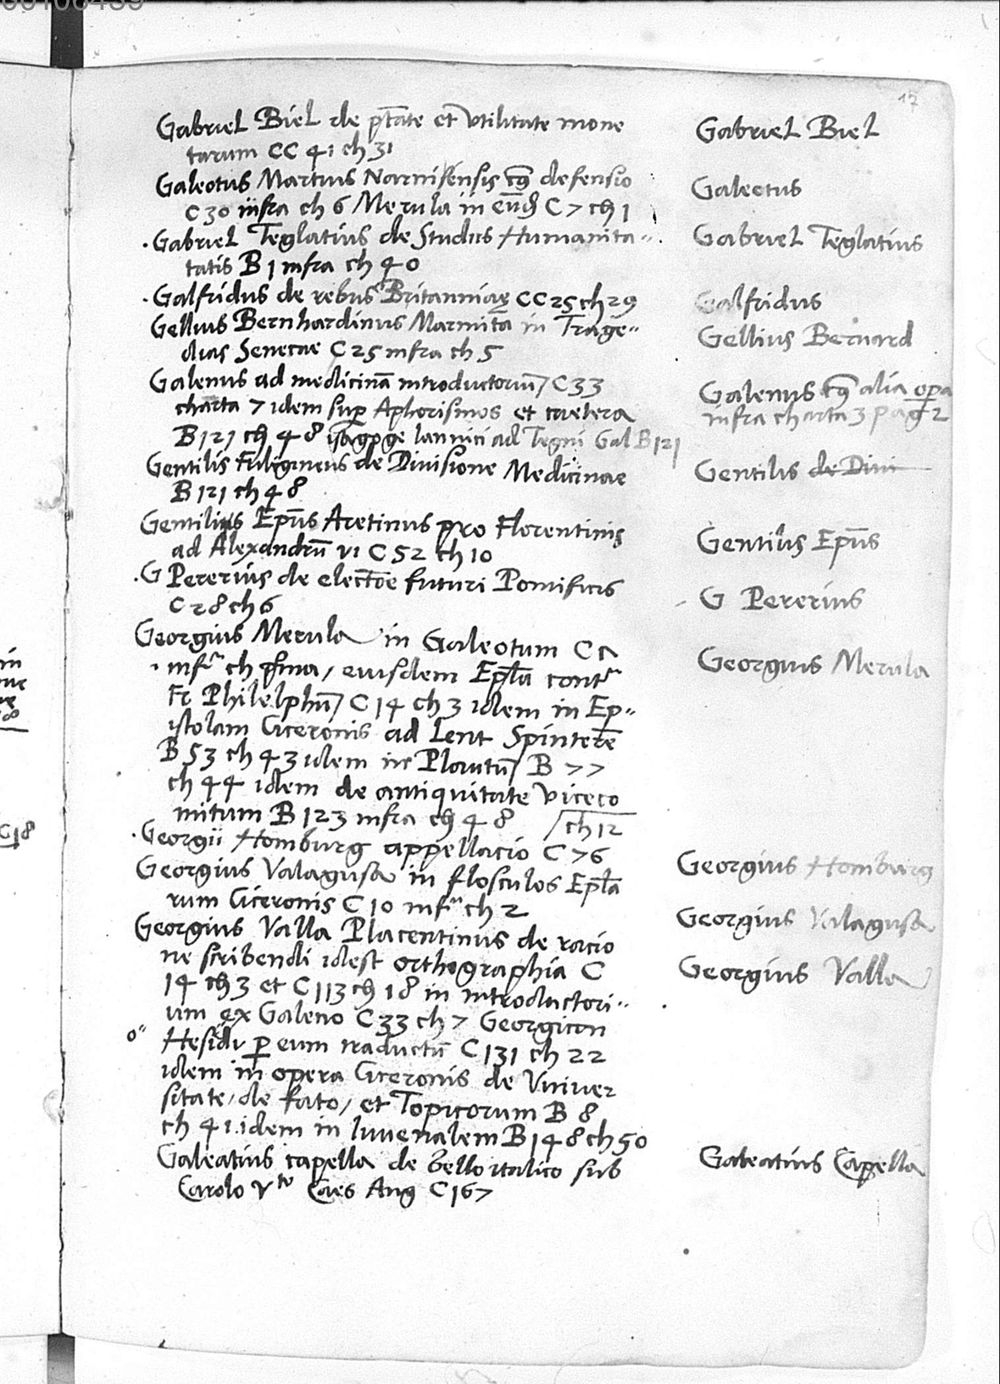 17
Gabriel Biel de ptāte et utilitate mone
tarum CC 41 ch 31
Gabriel Biel
Galeotus Martius Narniēnsis cū defensio
C 30 infra ch 6 Merula in eundē C 7 ch 1
Galeotus
·Gabriel Teglatius de Studiis Humanita-
tatis B 1 infra ch 40
Gabriel Teglatius
·Galfridus de rebus Britanniae CC 25 ch 29
Galfridus
Gellius Bernhardinus Marmitā in Trage-
dias Senecae C 25 infra ch 5
Gellius Bernard
Galenus ad medicinā introductoriū / C 33
charta 7 idem sup Aphorismos et caetera
B 121 ch 48 isagoge Iannici ad Tegni Gal B 121
Galenus cū alia opa
infra charta 3 pag 2
Gentilis Fulgineus de Divisione Medicinae
B 121 ch 48
Gentilis de Divi
Gentilius Epūs Aretinus pro Florentinis
ad Alexandrū VI C 52 ch 10
Gentilis Epūs
·G Pererius de electōe futuri Pontificis
C 28 ch 6
G Pererius
Georgius Merula in Galeotum C
infra ch prima / eiusdem Epla contra
Fr Philelphū / C 14 ch 3 idem in Ep-
istolam Ciceronis ad Lent Spinterē
B 53 ch 43 idem in Plautū / B 77
ch 44 idem de antiquitate Viceco
mitum B 123 infra ch 48
Georgius Merula
·Georgii Homburg appellacio C 76 ch 12
Georgius Homburg
Georgius Valagusa in flosculos Epla
rum Ciceronis C 10 infra ch 2
Georgius Valagusa
Georgius Valla Placentinus de racio
ne scribendi idest orthographia C
14 ch 3 et C 113 ch 18 in introductori-
um ex Galeno C 33 ch 7 Georgicon
Hesidu p eum traductū C 131 ch 22
idem in opera Ciceronis de Univer
sitate / de fato / et Topicorum B 8
ch 41. idem in Iuvenalem B 148 ch 50
Georgius Valla
Galeatius capella de bello italico sub
Carolo Vto Caes Aug C 167
Galeatius Capella